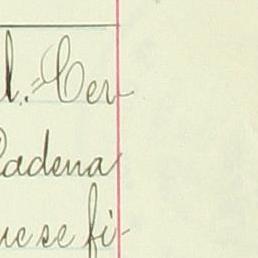 l.=Cer-
Cadena
ue se fi-